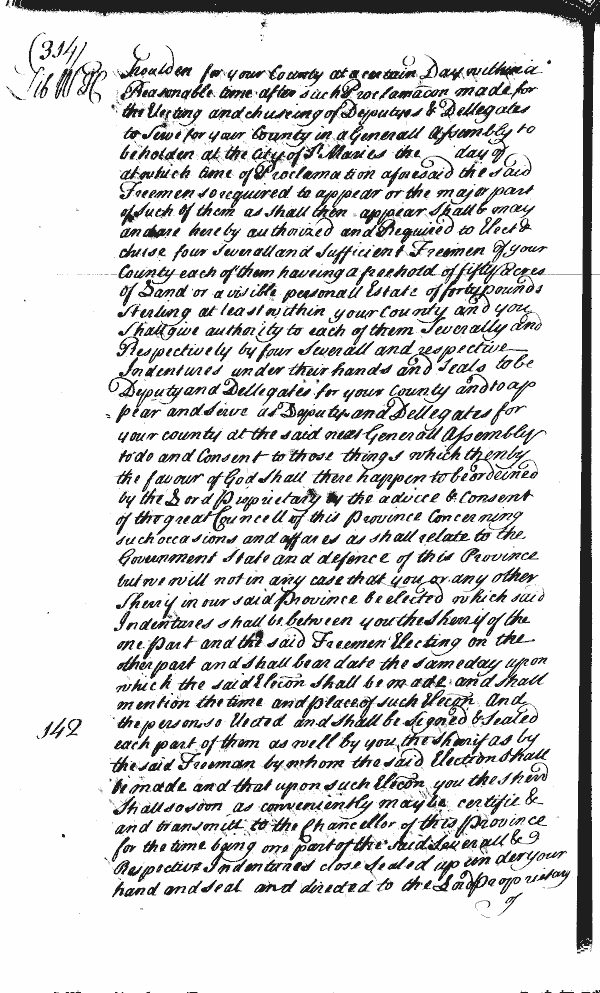 (314)
Lib W H
houlden for your County at a certain Day within a
Reasonable time after such Proclamacon made for
the Electing and chuseing of Deputyes & Dellegates
to Serve for your County in a Generall Assembly to
be holden at the City of St Maries the day of
at which time of Proclamation aforesaid the said
Freemen so required to appear or the major part
of such of them as shall then appear shall & may
and are hereby authorized and Required to Elect &
chuse four Severall and Sufficient Freemen of your
County each of them haveing a freehold of fifty Acres
of Land or a visible personall Estate of forty pounds
Sterling at least within your County and you
Shall give authority to each of them Severally and
Respectively by four Severall and respective
Indentures under their hands and Seals to be
Deputy and Dellegates for your County and to ap
pear and Serve as Deputy and Dellegates for
your county at the said next Generall Assembly
to do and Consent to those things which then by
the favour of God Shall there happen to be ordeined
by the Lord Proprietary by the advice & Consent
of the great Councell of this Province Concerning
such occasions and affares as shall relate to the
Government State and defence of this Province
but we will not in any case that you or any other
Sherriff in our said Province be elected which said
Indentures shall be between you the Sherif of the
one Part and the said Freemen Electing on the
other part and shall bear date the same day upon
which the said Elecon Shall be made and shall
mention the time and place of such Elecon And
the person so Elected and shall be Signed & Sealed
142
each part of them as well by you the sherif as by
the said Freeman by whom the said Election Shall
be made and that upon such Elecon you the Sherif
Shall so soon as conveniently may be certifie &
and transmitt to the Chancellor of this Province
for the time being one part of the said Severall &
Respective Indentures close Sealed up under your
hand and seal and directed to the Lord Proprietary
of